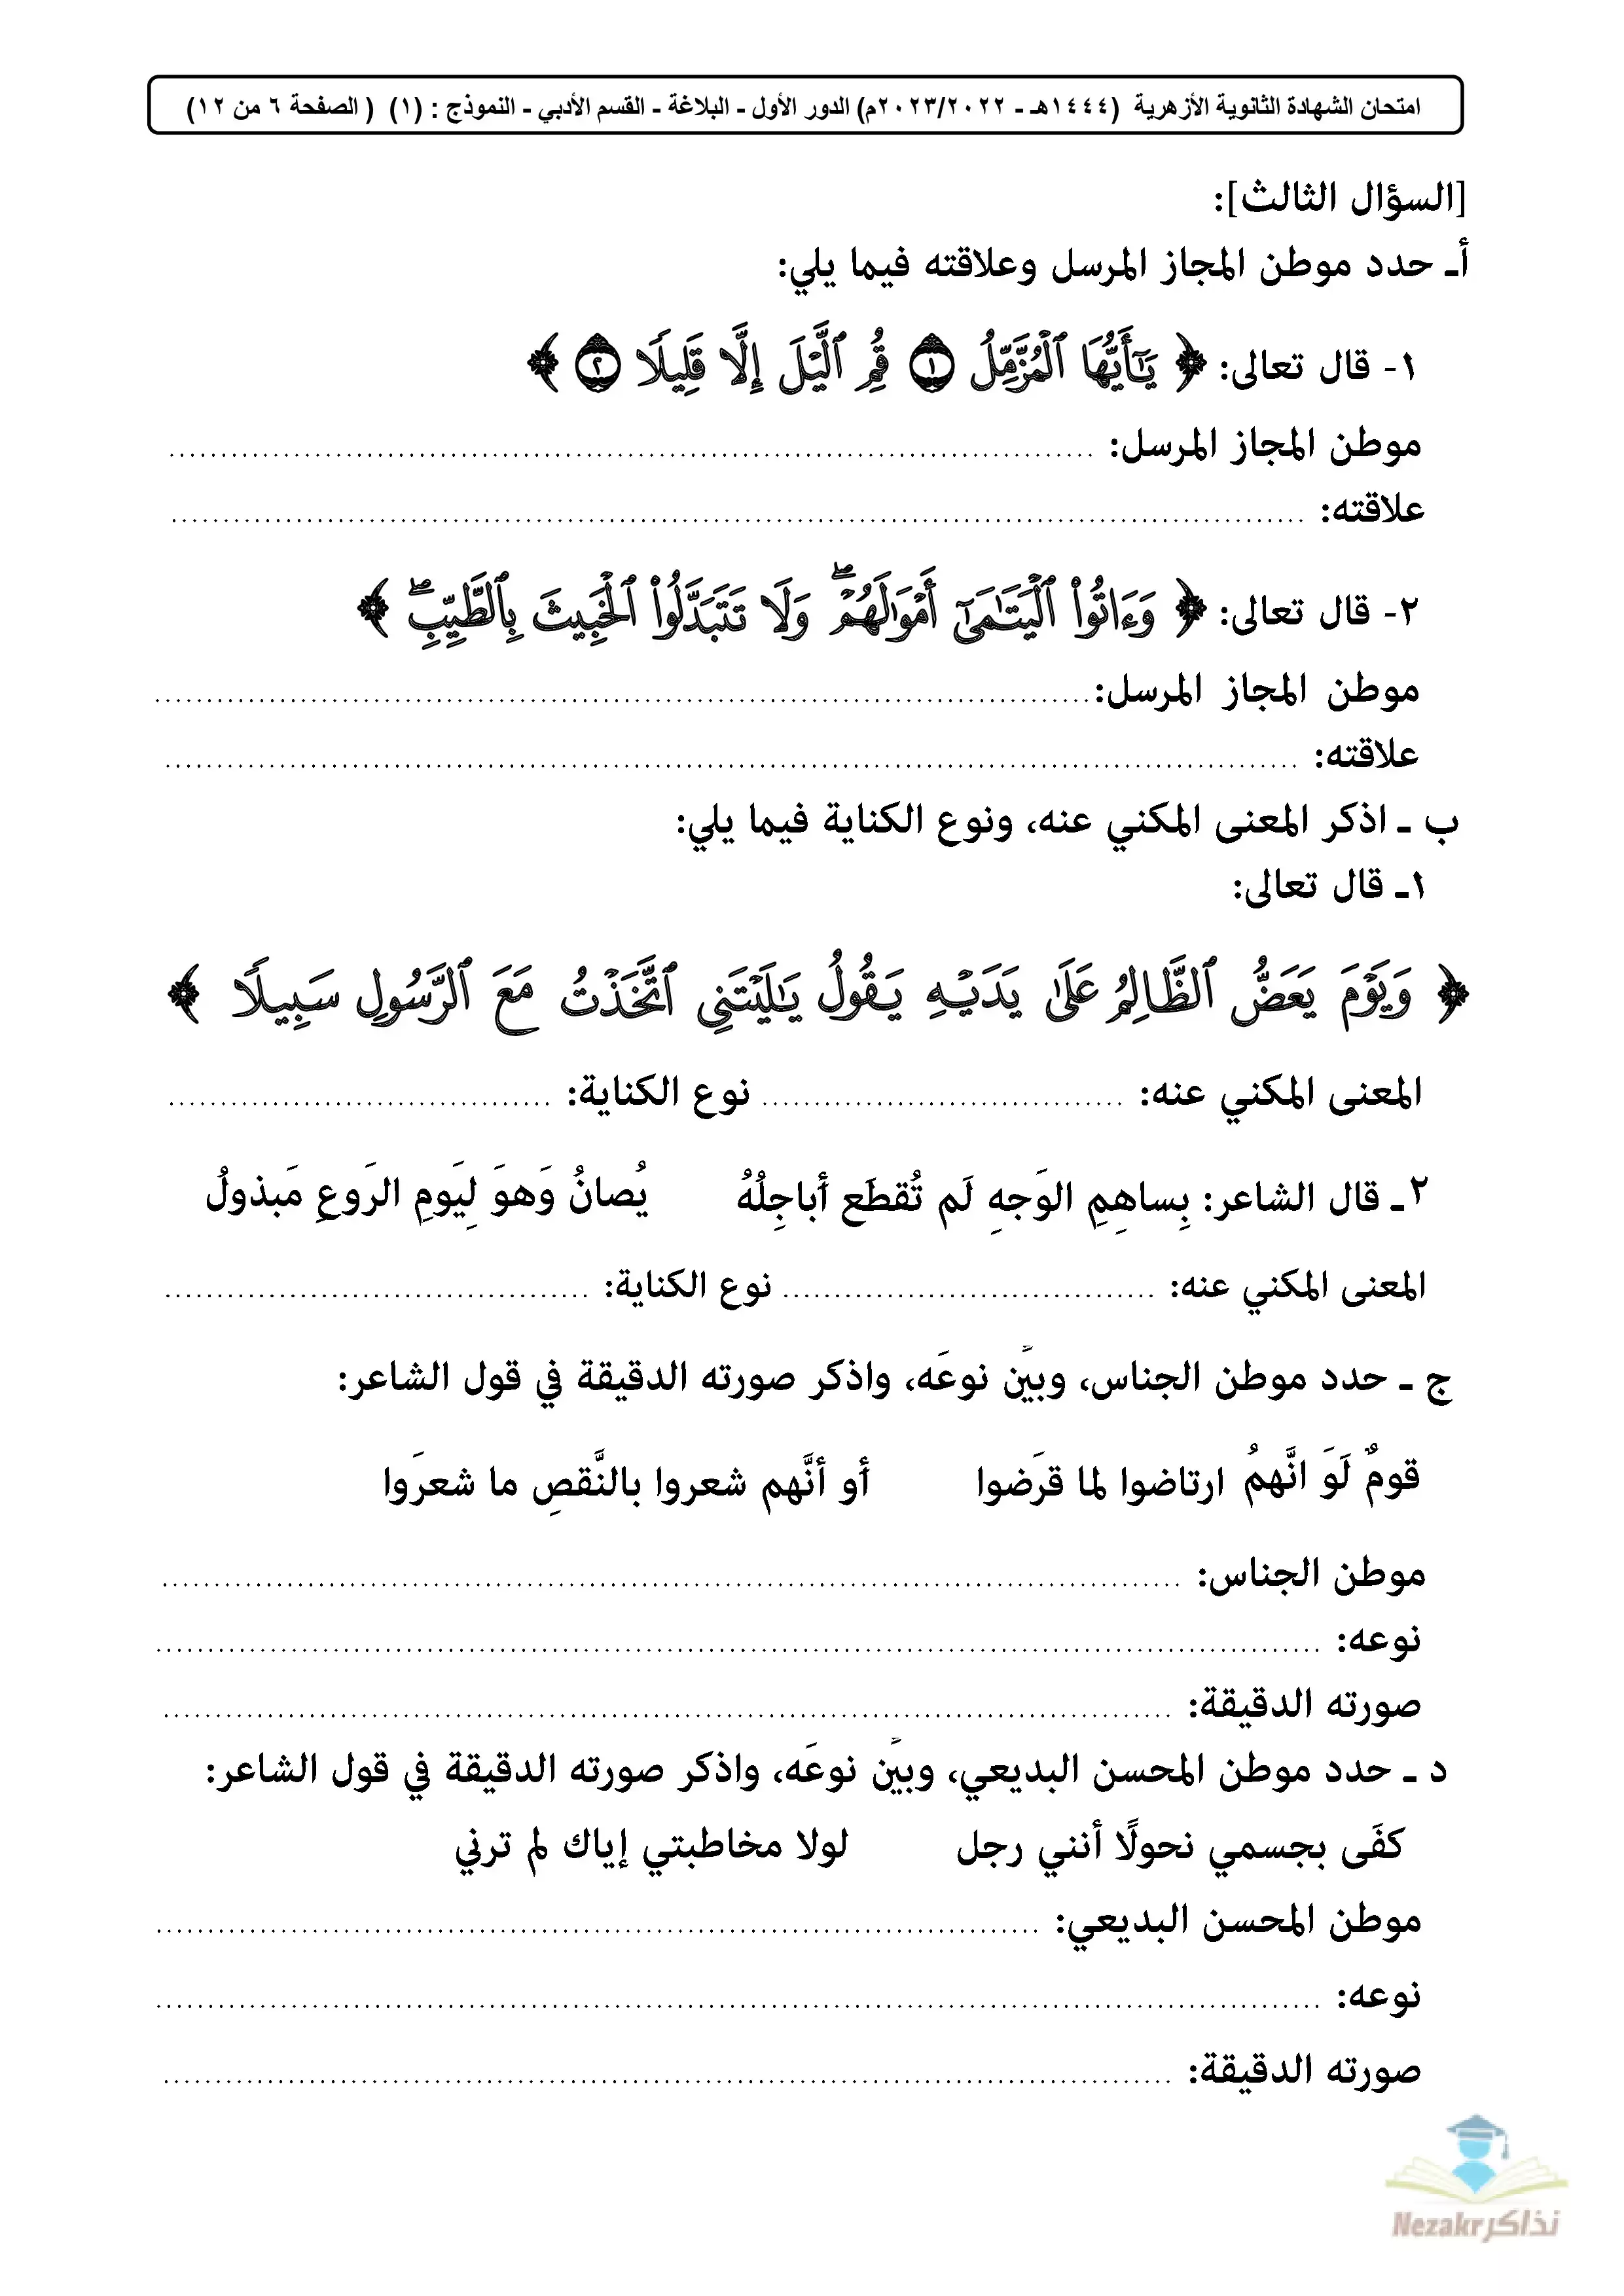 امتحان الشهادة الثانوية الأزهرية (١٤٤٤هـ - ٢٠٢٣/٢٠٢٢م) الدور الأول - البلاغة - القسم الأدبي - النموذج : (١) ( الصفحة ٦ من ١٢)
[السؤال الثالث]:
أـ حدد موطن المجاز المرسل وعلاقته فيما يلي:
١- قال تعالى: ﴿ يَٰٓأَيُّهَا ٱلْمُزَّمِّلُ ١ قُمِ ٱلَّيْلَ إِلَّا قَلِيلًا ٢ ﴾
موطن المجاز المرسل: ........................................
علاقته: ........................................
٢- قال تعالى: ﴿ وَءَاتُوا۟ ٱلْيَتَٰمَىٰٓ أَمْوَٰلَهُمْ ۖ وَلَا تَتَبَدَّلُوا۟ ٱلْخَبِيثَ بِٱلطَّيِّبِ ۖ ﴾
موطن المجاز المرسل:........................................
علاقته: ........................................
ب ـ اذكر المعنى المكني عنه، ونوع الكناية فيما يلي:
١ـ قال تعالى:
﴿ وَيَوْمَ يَعَضُّ ٱلظَّالِمُ عَلَىٰ يَدَيْهِ يَقُولُ يَٰلَيْتَنِى ٱتَّخَذْتُ مَعَ ٱلرَّسُولِ سَبِيلًا ﴾
المعنى المكني عنه: .................... نوع الكناية: ....................
٢ـ قال الشاعر: بِساهِمِ الوَجهِ لَم تُقطَع أَباجِلُهُ يُصانُ وَهوَ لِيَومِ الرَوعِ مَبذولُ
المعنى المكني عنه: .................... نوع الكناية: ....................
ج ـ حدد موطن الجناس، وبيِّن نوعَه، واذكر صورته الدقيقة في قول الشاعر:
قومٌ لَوَ انَّهمُ ارتاضوا لما قرَضوا أو أنَّهم شعروا بالنَّقصِ ما شعرَوا
موطن الجناس: ........................................
نوعه: ........................................
صورته الدقيقة: ........................................
د ـ حدد موطن المحسن البديعي، وبيِّن نوعَه، واذكر صورته الدقيقة في قول الشاعر:
كفَى بجسمي نحولًا أنني رجل لولا مخاطبتي إياك لم ترني
موطن المحسن البديعي: ........................................
نوعه: ........................................
صورته الدقيقة: ........................................
Nezakr نذاكر